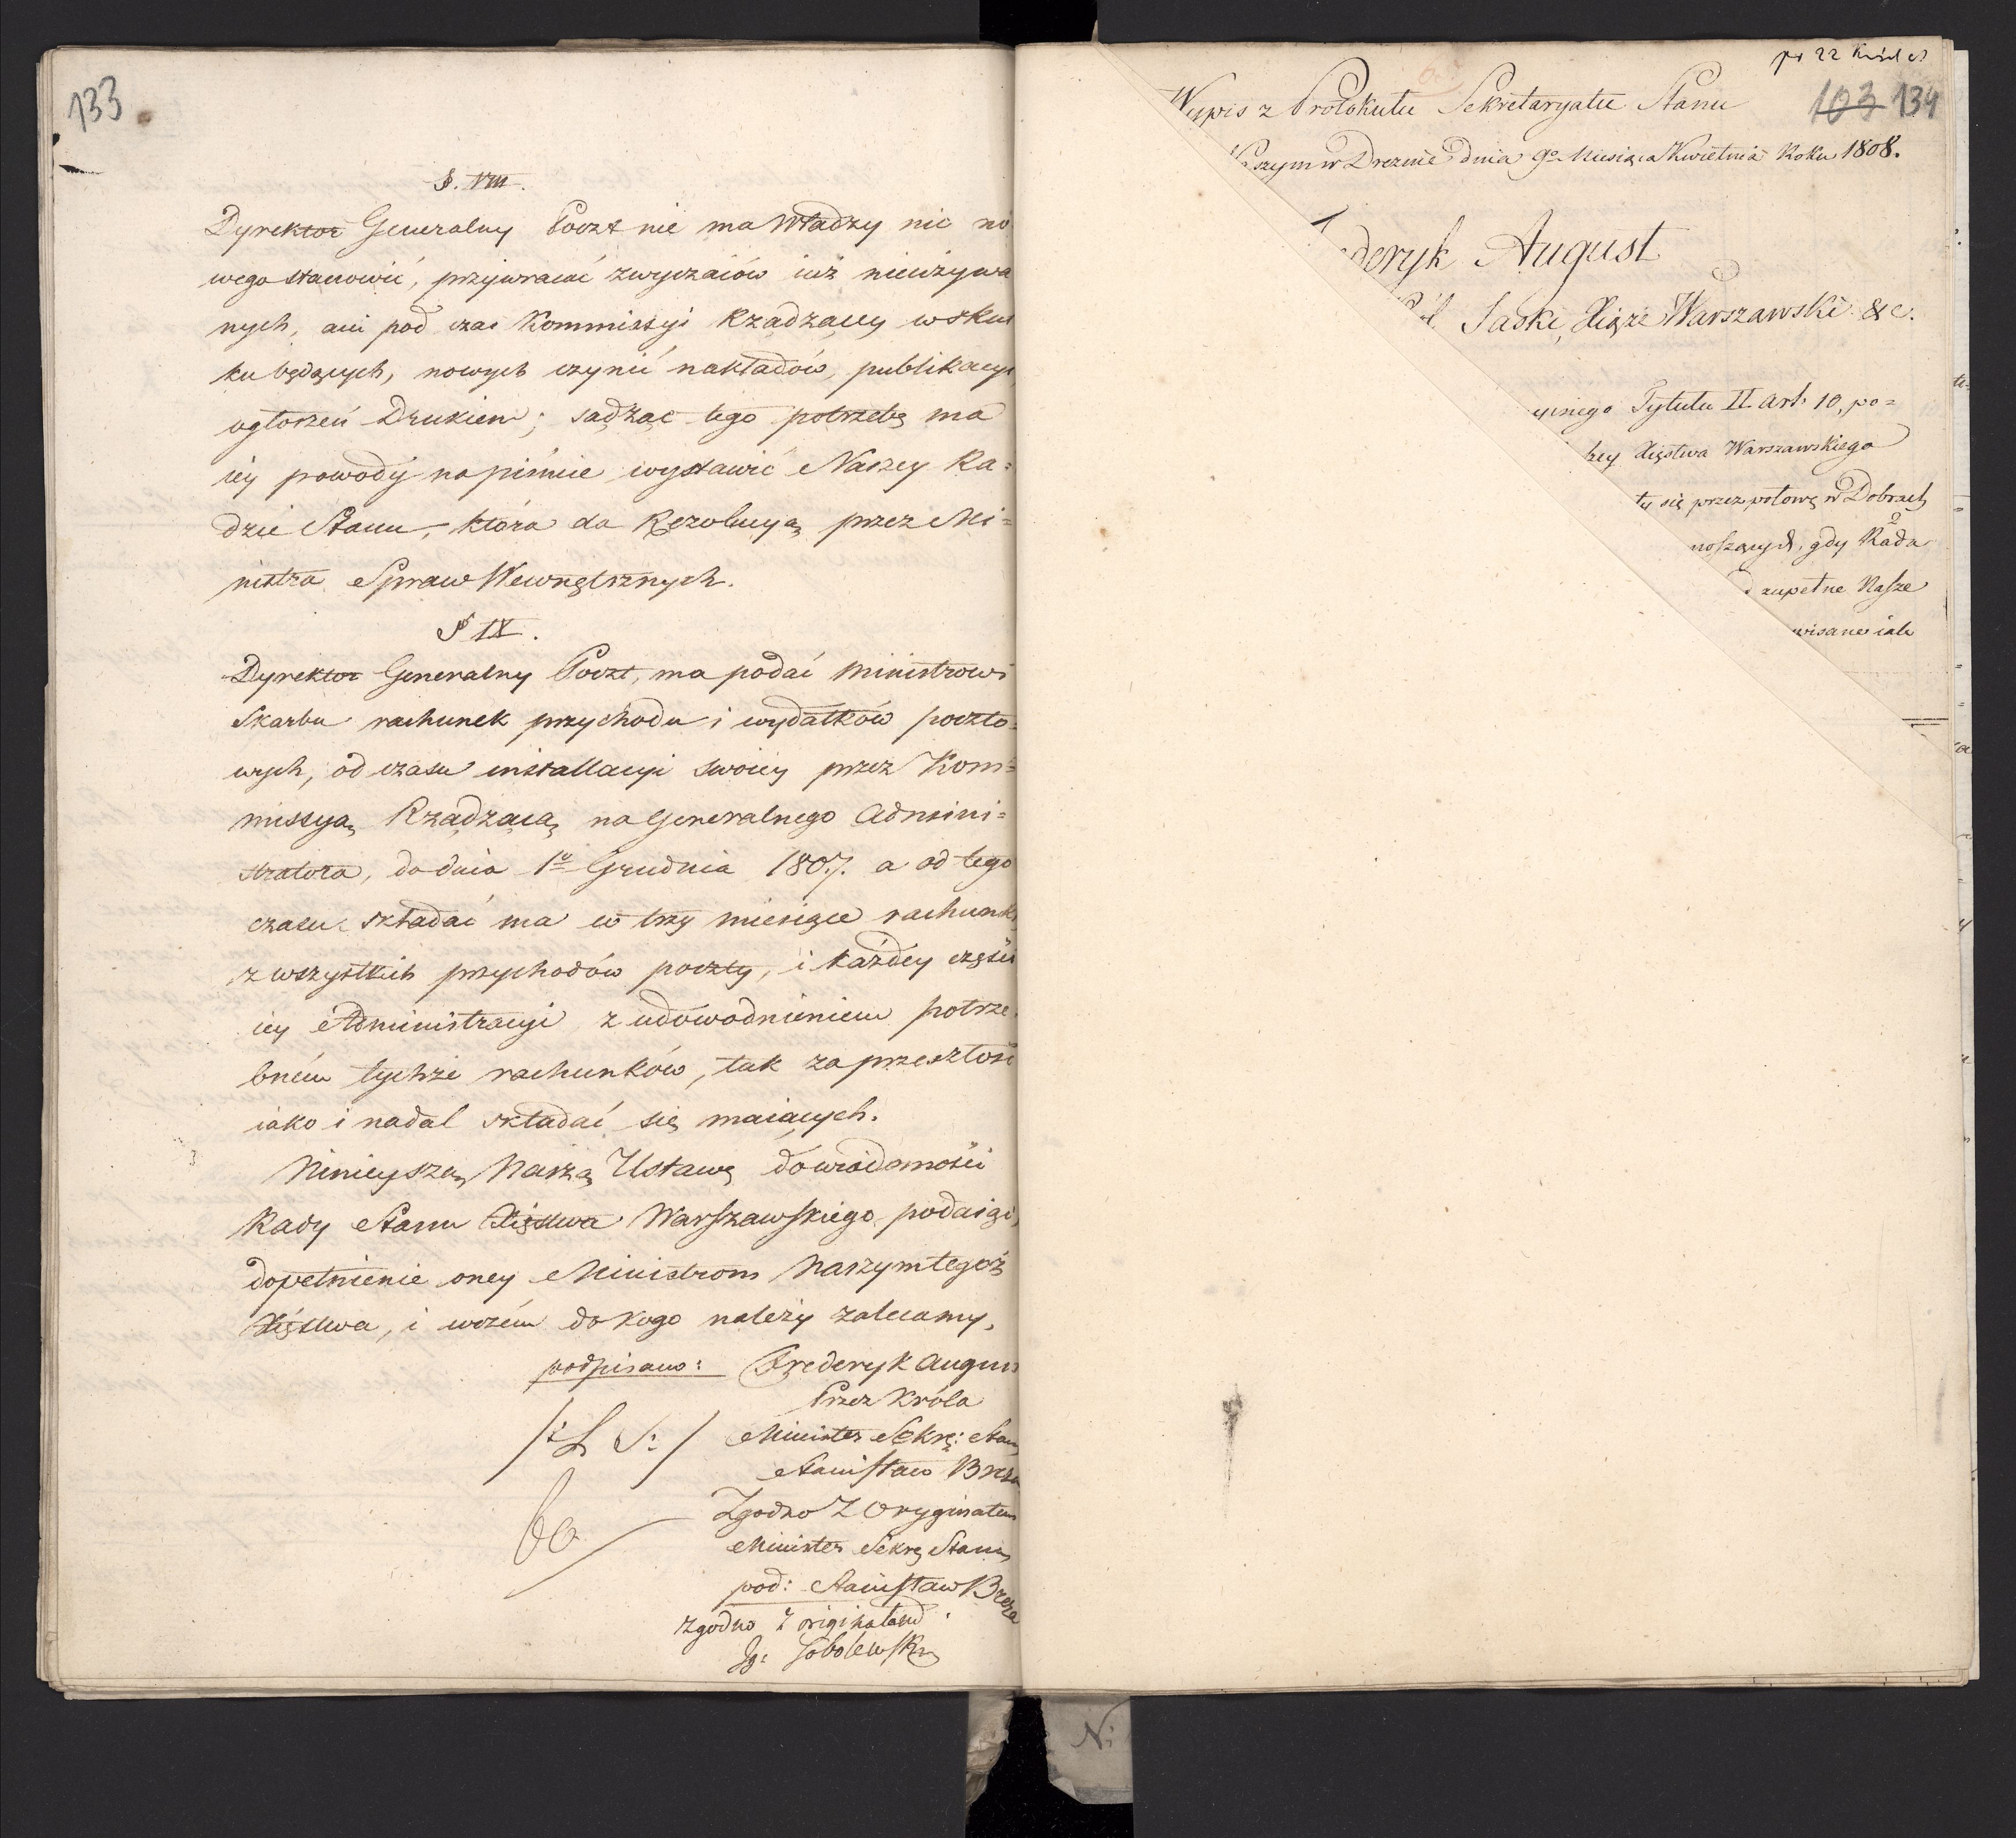 133
§. VIII.
Dyrektor Generalny Poczt nie ma Władzy nic no
wego stanowić, przywracać zwyczaiów iuż nieużywa
nych, ani pod czas Kommissyi Rządzącey w skut
ku będących, nowych czynić nakładów, publikacyi
ogłoszeń Drukiem; sądząc tego potrzebę ma
iey powody na piśmie wystawić Naszey Ra=
dzie Stanu, która da Rezolucyą przez Mi=
nistra Spraw Wewnętrznych.
§ IX.
Dyrektor Generalny Poczt, ma podać Ministrowi
Skarbu rachunek przychodu i wydatków poczto=
wych, od czasu installacyi swoiey przez Kom=
missyą Rządzącą na Generalnego Admini=
stratora, do dnia 1º Grudnia 1807. a od tego
czasu składać ma co trzy miesiące rachunki
z wszystkich przychodów poczty, i każdey części
iey Administracyi z udowodnieniem potrze
bném tychże rachunków, tak za przeszłość
iako i nadal składać się maiących.
Ninieyszą Naszą Ustawę do wiadomości
Rady Stanu Xięstwa Warszawskiego podaiąc,
dopełnienie oney Ministrom Naszym tegoż
Xięstwa, i wszém do kogo należy zalecamy.
podpisano: Fryderyk Augus
Przez Króla
/: L S: / Minister Sekre: Stanu
Stanisław Breza
Zgodno Z Oryginałem
Minister Sekre Stanu
pod: Stanisław Breza
zgodno z originałem
Ig: Sobolewski
pr 22 Kwiet
Wypis z Protokułu Sekretaryatu Stanu
103 134
szym w Dreznie dnia 9º Miesiąca Kwietnia Roku 1808.
deryk August
Saski, Xiąże Warszawski &c.
yinego Tytułu II art: 10, po=
zey Xięstwa Warszawskiego
ty się przez połowę w Dobrach
noszących, gdy Rada
zupełne Nasze
wisane iak
N: